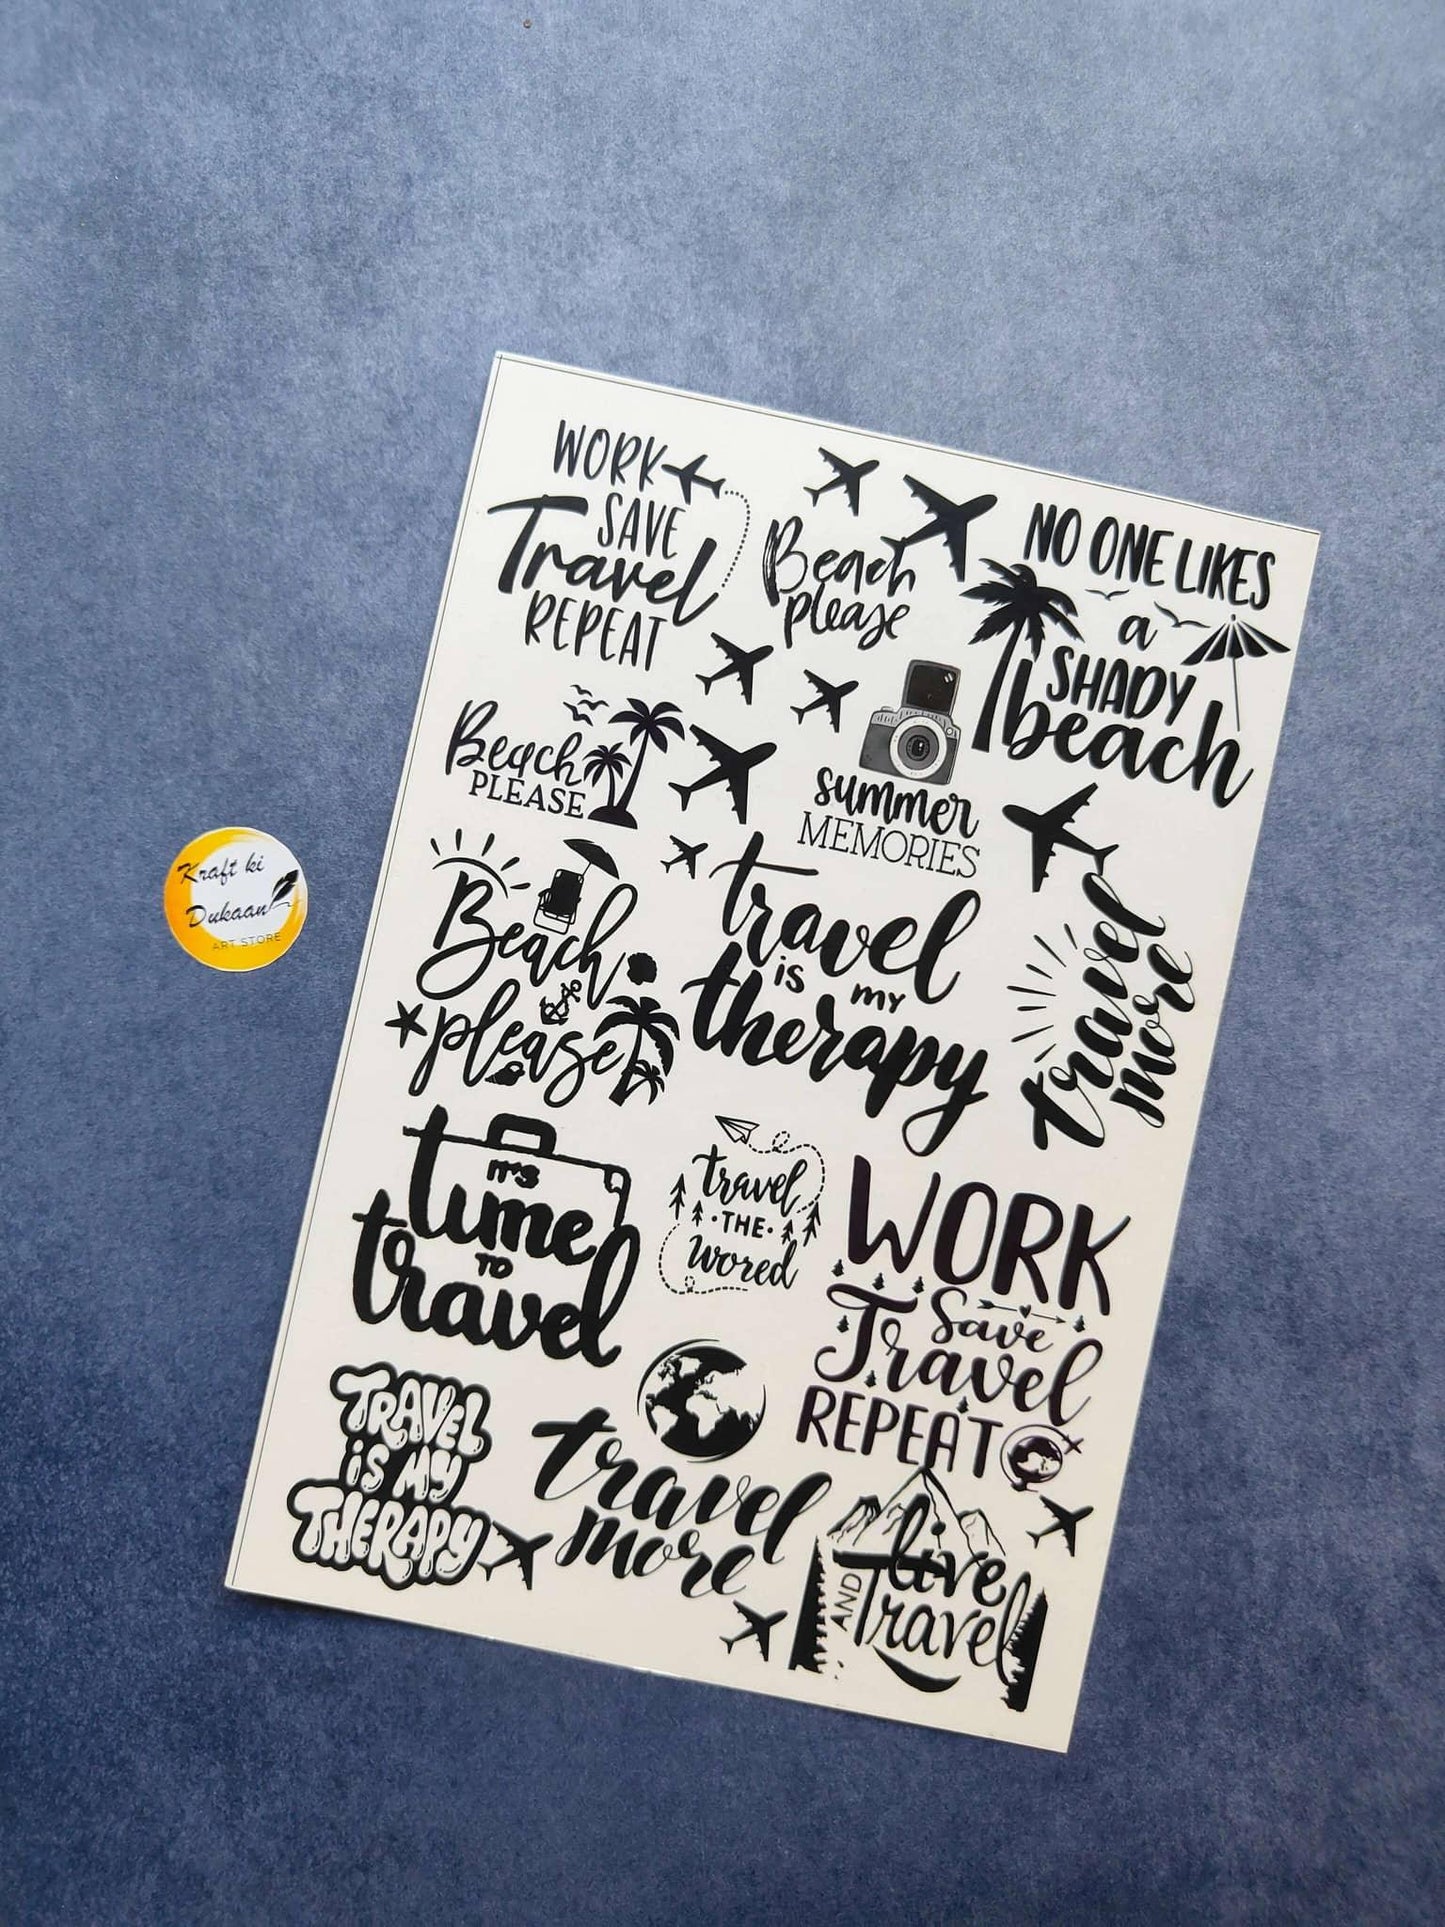 WORK
SAVE
Travel
REPEAT
Beach
please
NO ONE LIKES
a
SHADY
beach
Beach
PLEASE
summer
MEMORIES
Beach
please
travel
is my
therapy
travel
more
Kraft ki
Dukaan
ART STORE
IT'S
time
TO
travel
travel
•THE•
wored
WORK
Save
Travel
REPEAT
TRAVEL
is MY
THERAPY
travel
more
live
AND
Travel